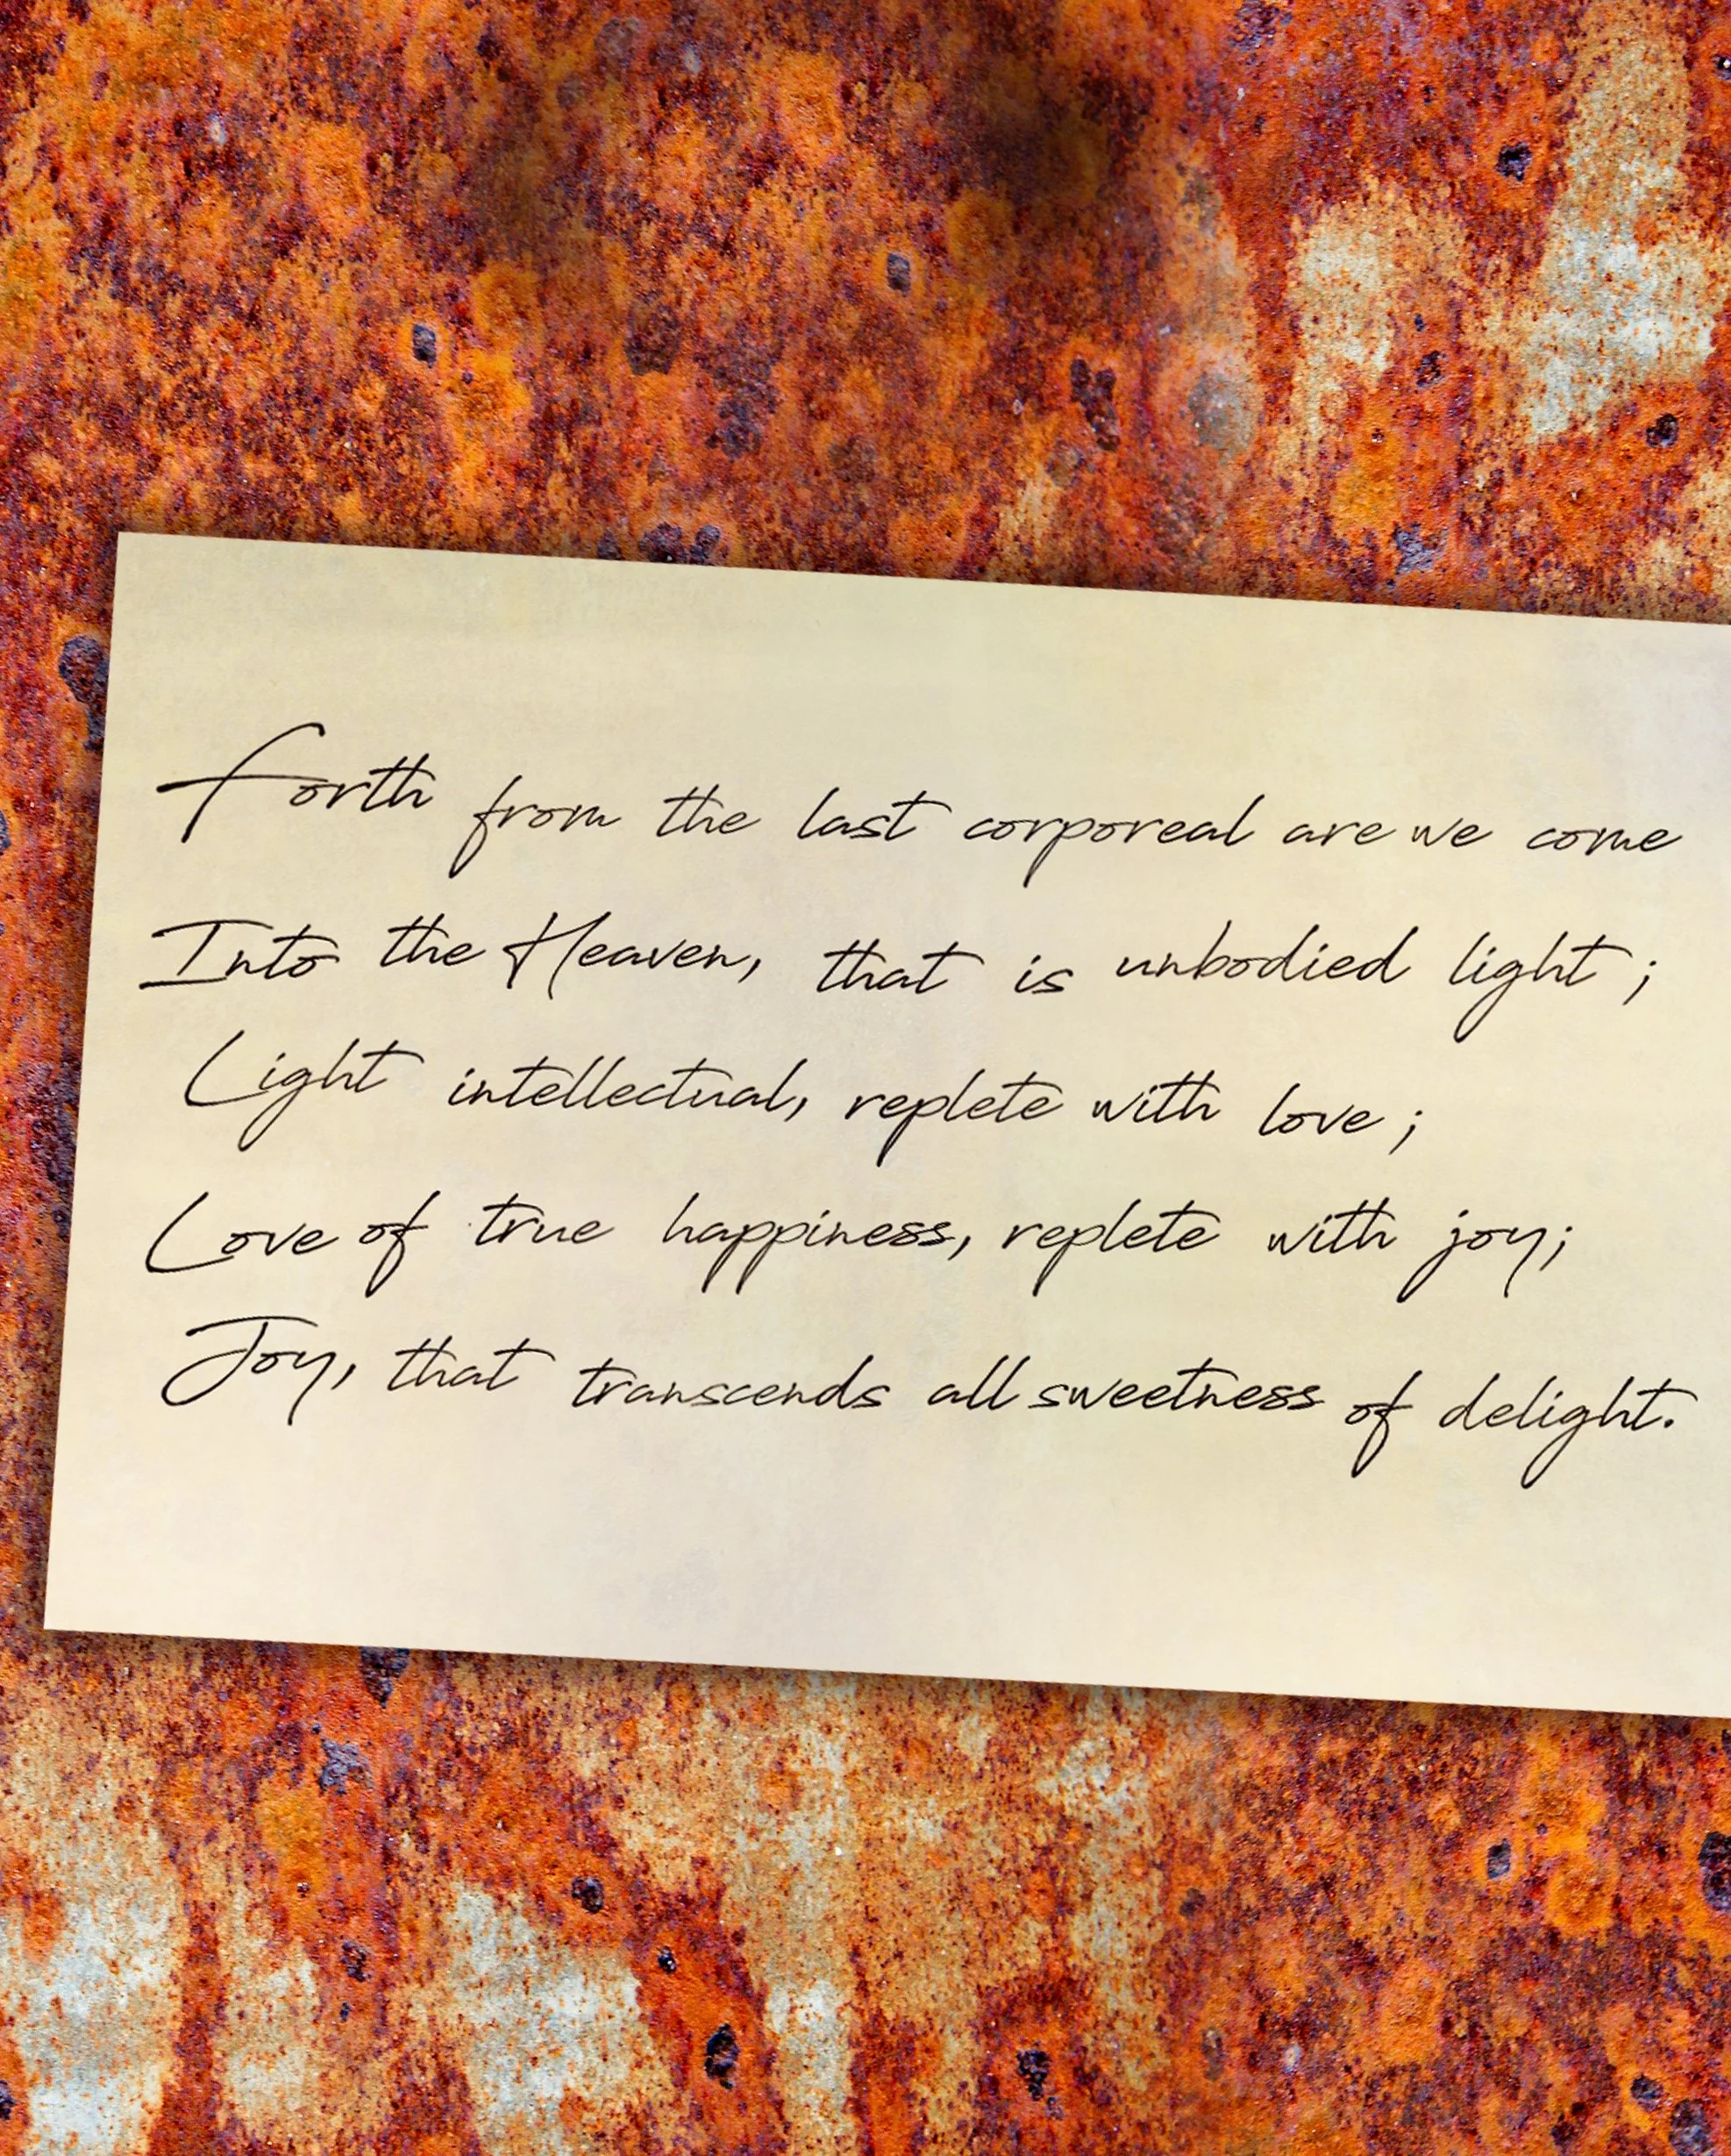 Forth from the last corporeal are we come
Into the Heaven, that is unbodied light ;
Light intellectual, replete with love ;
Love of true happiness, replete with joy;
Joy, that transcends all sweetness of delight.